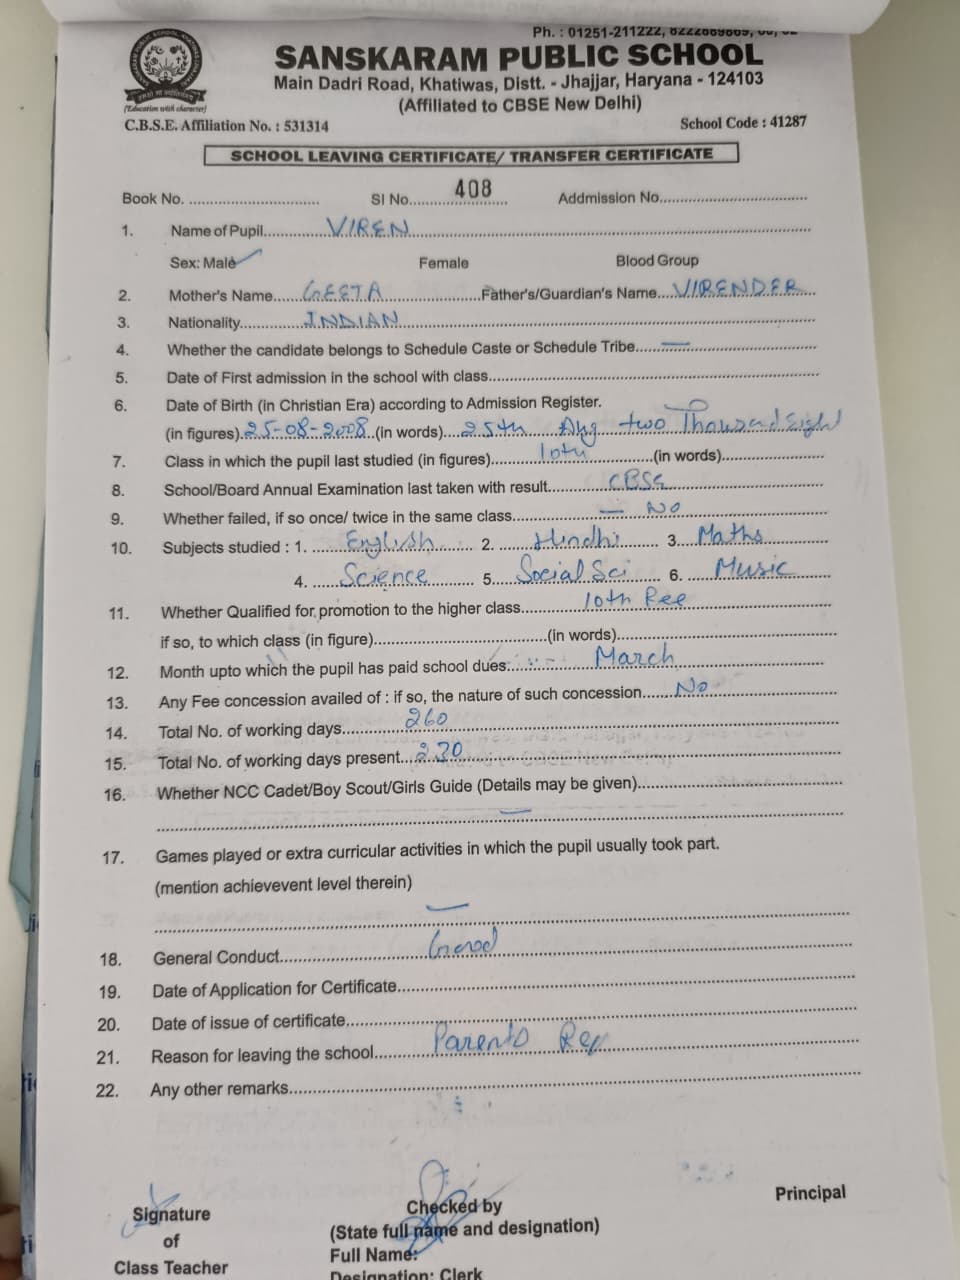 Ph. : 01251-211222,
SANSKARAM PUBLIC SCHOOL
Main Dadri Road, Khatiwas, Distt. - Jhajjar, Haryana - 124103
(Affiliated to CBSE New Delhi)
(Education with character)
C.B.S.E. Affiliation No. : 531314 School Code : 41287
SCHOOL LEAVING CERTIFICATE/ TRANSFER CERTIFICATE
Book No. .............................. Sl No. 408 Addmission No.....................................
1. Name of Pupil VIREN
Sex: Male Female Blood Group
2. Mother's Name GEETA Father's/Guardian's Name VIRENDER
3. Nationality INDIAN
4. Whether the candidate belongs to Schedule Caste or Schedule Tribe —
5. Date of First admission in the school with class
6. Date of Birth (in Christian Era) according to Admission Register.
(in figures) 25-08-2008 (in words) 25th Aug two Thousad Eight
7. Class in which the pupil last studied (in figures) 10th (in words)
8. School/Board Annual Examination last taken with result CBSE
9. Whether failed, if so once/ twice in the same class — No
10. Subjects studied : 1. English 2. Hindhi 3. Maths
4. Science 5. Social Sci 6. Music
11. Whether Qualified for promotion to the higher class 10th
if so, to which class (in figure) (in words)
12. Month upto which the pupil has paid school dues March
13. Any Fee concession availed of : if so, the nature of such concession No
14. Total No. of working days 260
15. Total No. of working days present 230
16. Whether NCC Cadet/Boy Scout/Girls Guide (Details may be given)
—
17. Games played or extra curricular activities in which the pupil usually took part.
(mention achievevent level therein)
—
18. General Conduct Good
19. Date of Application for Certificate
20. Date of issue of certificate
21. Reason for leaving the school Parents
22. Any other remarks
Signature Checked by Principal
of (State full name and designation)
Class Teacher Full Name:
Designation: Clerk